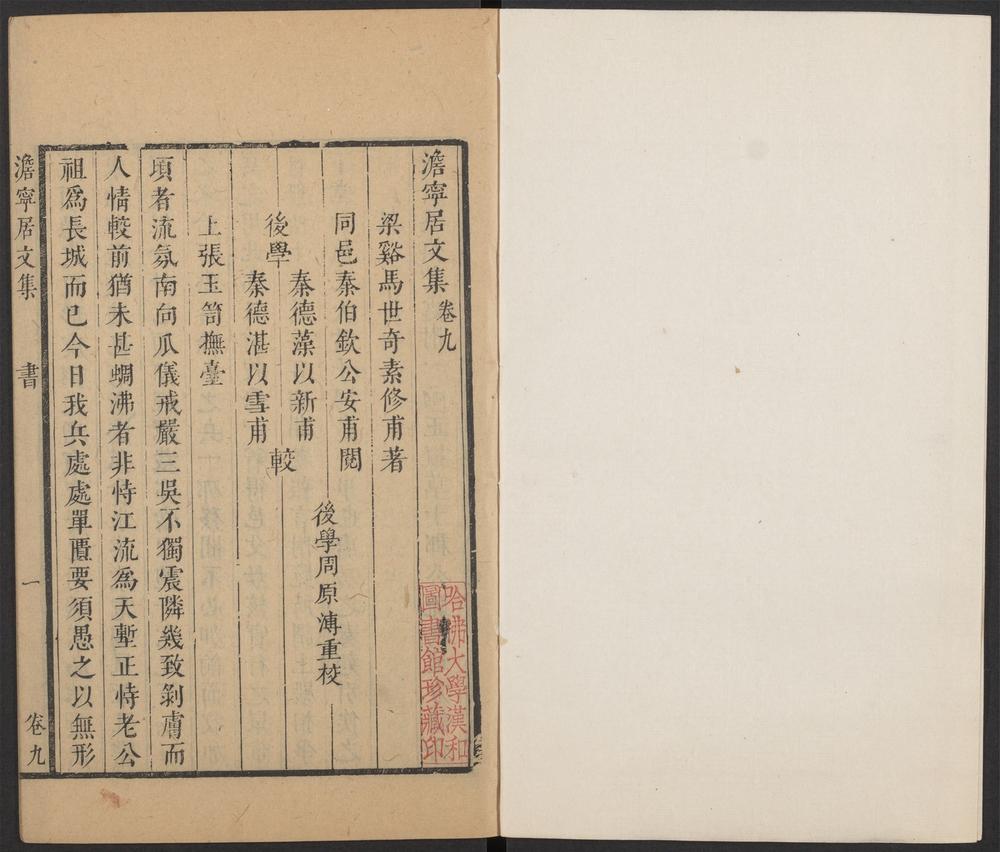 澹寧居文集卷九
梁谿馬世奇素修甫著
同邑秦伯欽公安甫閱
後學周原溥重校
秦德藻以新甫
後學 較
秦德湛以雪甫
上張玉笥撫臺
頃者流氛南向瓜儀戒嚴三吳不獨震隣幾致剝膚而
人情較前猶未甚蜩沸者非恃江流爲天塹正恃老公
祖爲長城而已今日我兵處處單匱要須愚之以無形
澹寧居文集 書 一 卷九
哈佛大學漢和
圖書館珍藏印